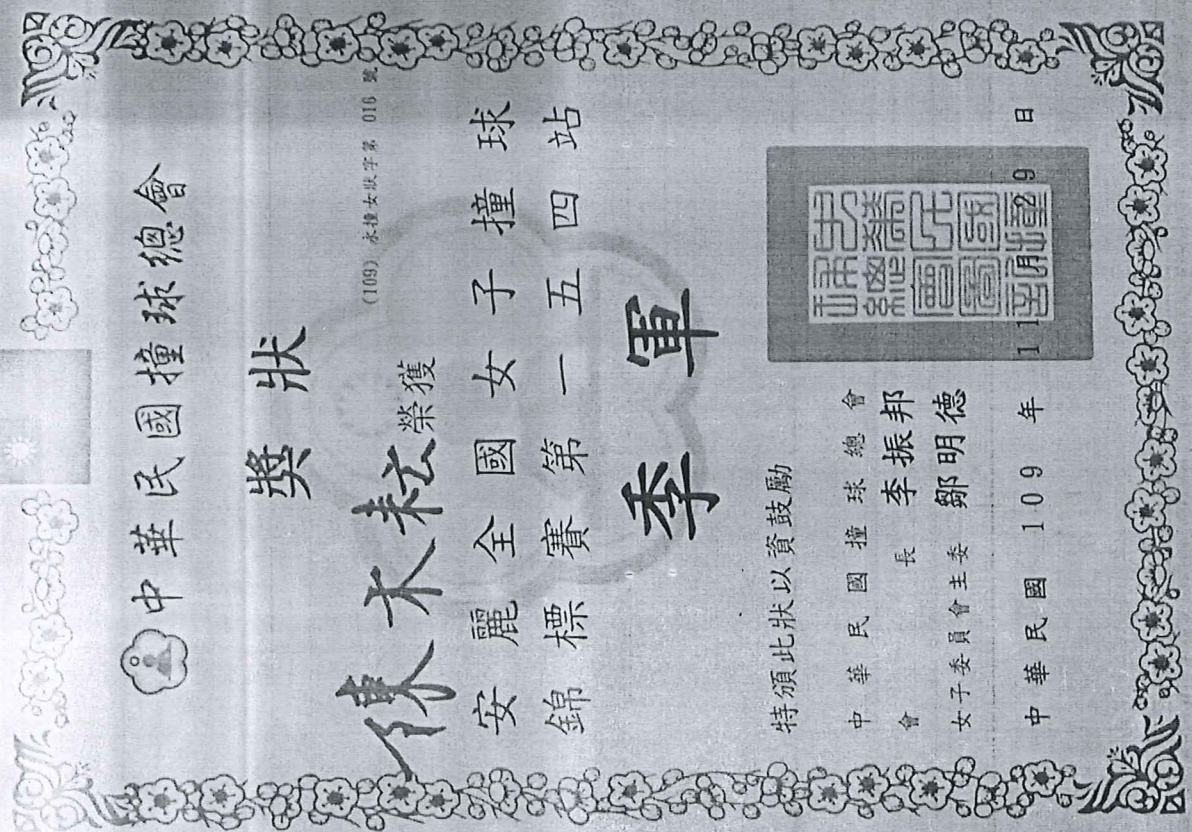 中華民國撞球總會
獎狀
(109) 永撞女狀字第 016 號
陳禾耘榮獲
安麗全國女子撞球
錦標賽第一五四站
季軍
特頒此狀以資鼓勵
中華民國撞球總會
會長 李振邦
女子委員會主委 鄒明德
中華民國 109 年 11 月 29 日